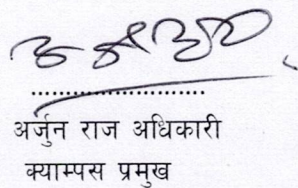 अर्जुन राज अधिकारी
क्याम्पस प्रमुख